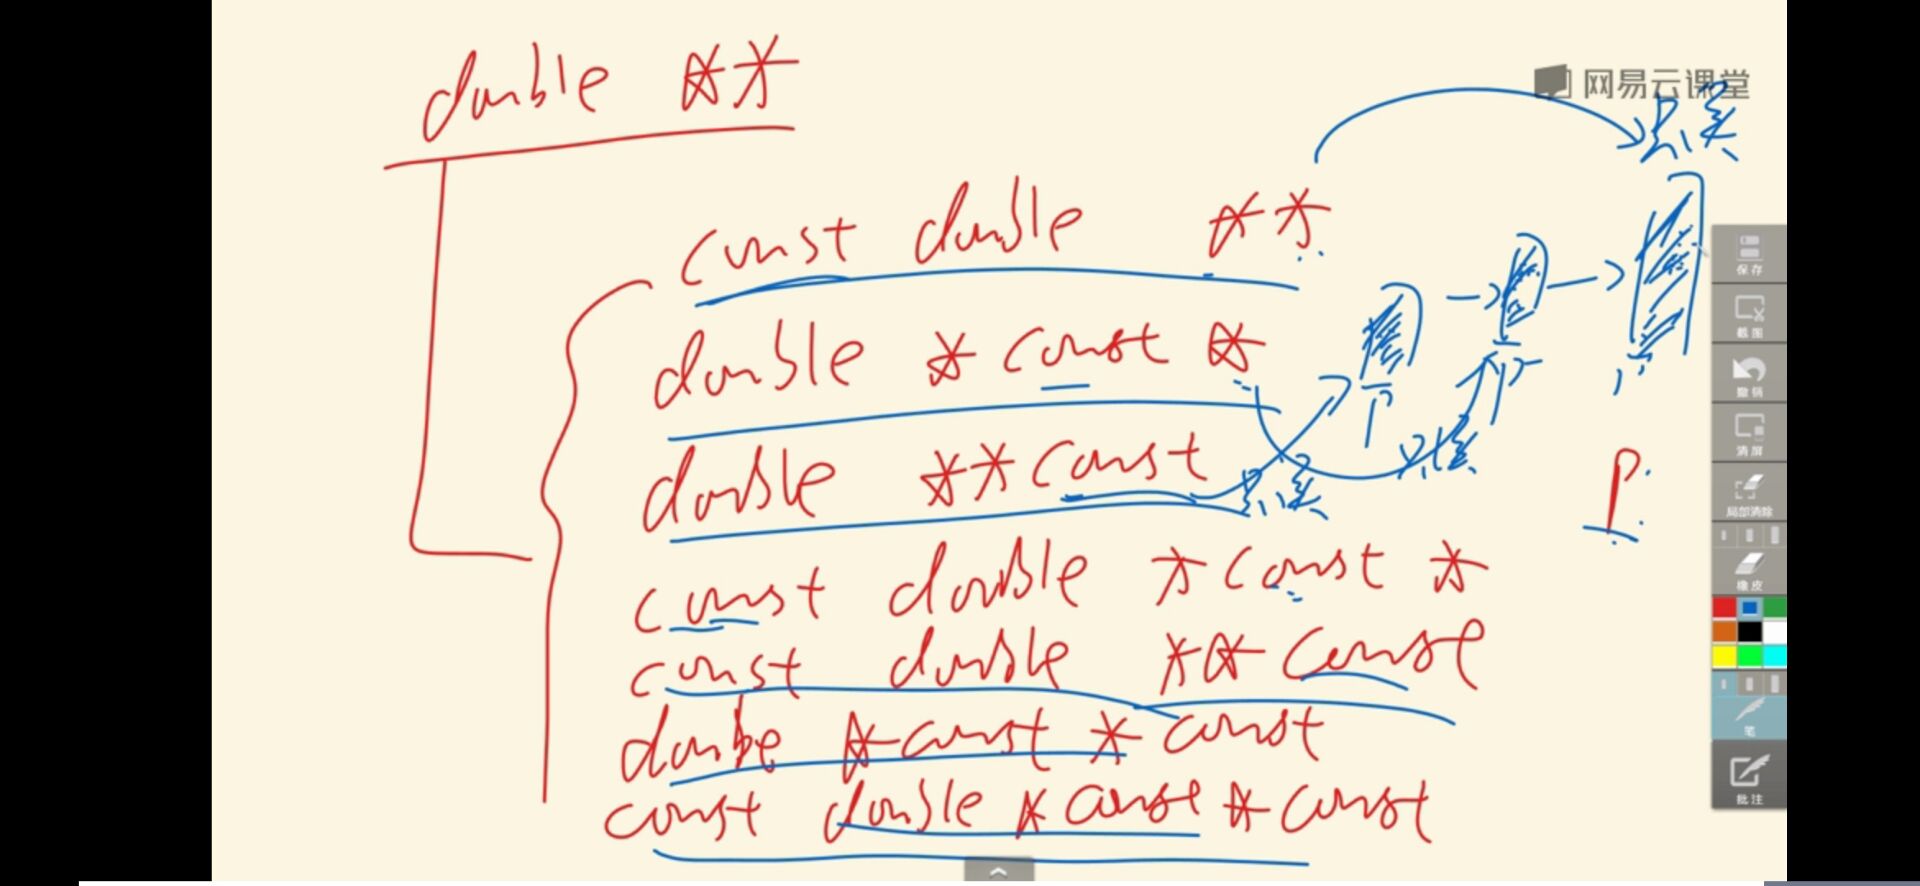 double **
网易云课堂
const double **
double * const *
double ** const
const double * const *
const double ** const
double * const * const
const double * const * const
P
P
P
保存
截图
撤销
清屏
局部清除
橡皮
笔
批注